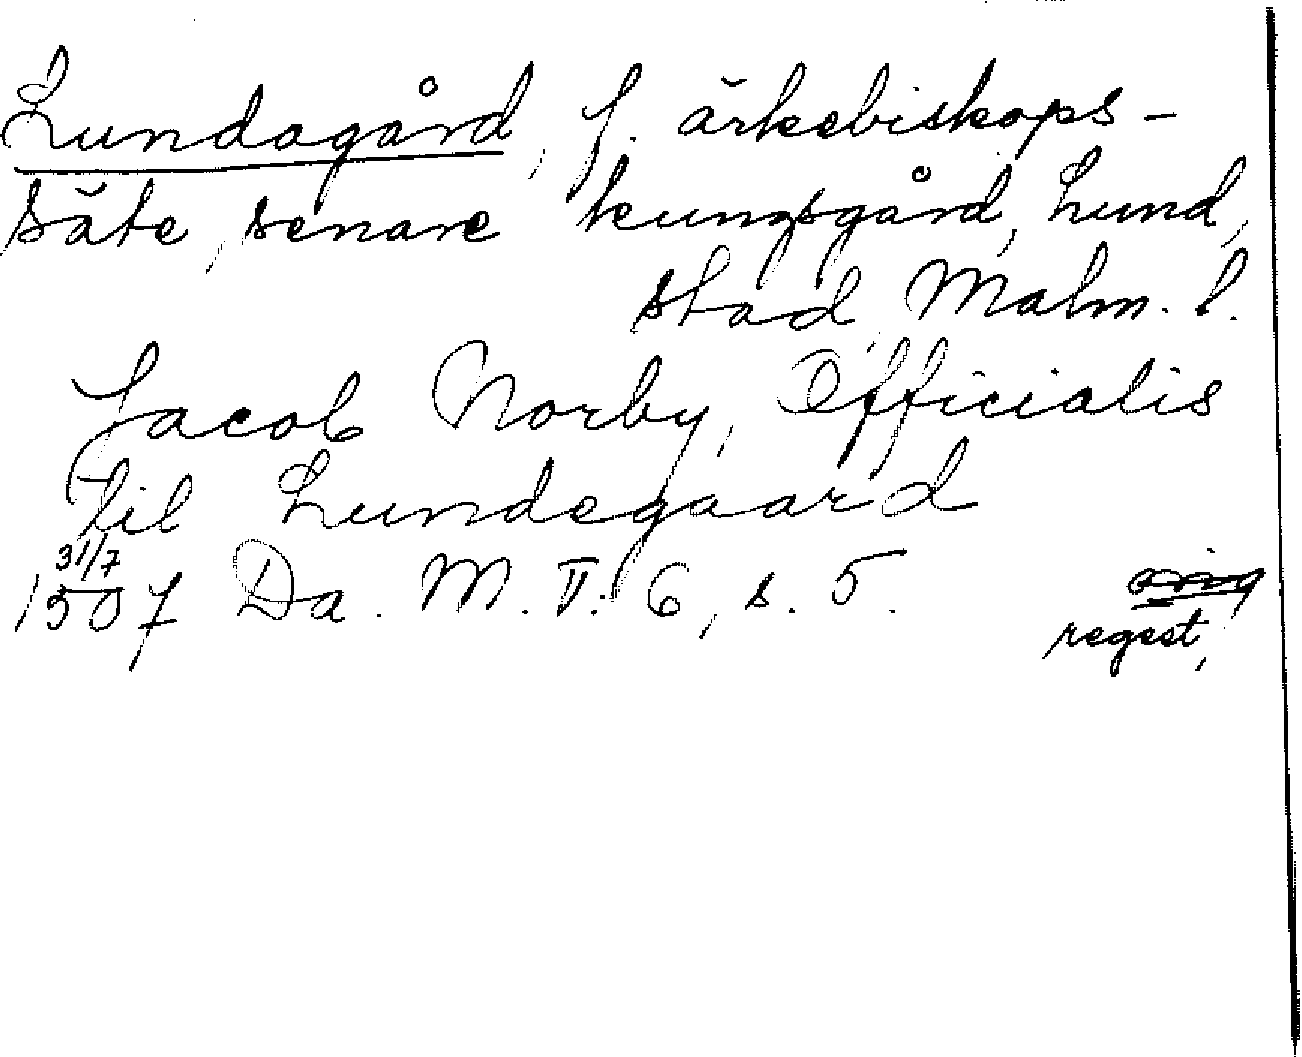 Lundagård, f. ärkebiskops-
säte, senare kungsgård, Lund,
stad, Malm. l.
Jacob Norby, Officialis
til Lundegaard
31/7
1507 Da. M. II. 6, s. 5.
regest,